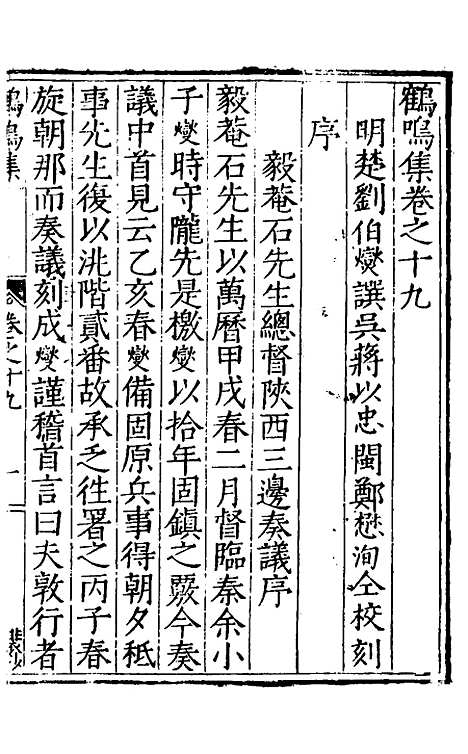 鶴鳴集卷之十九
明楚劉伯燮譔吳蔣以忠閩鄭懋洵仝校刻
序
毅菴石先生總督陝西三邊奏議序
毅菴石先生以萬曆甲戌春二月督臨秦余小
子燮時守隴先是檄燮以拾年固鎮之覈今奏
議中首見云乙亥春燮備固原兵事得朝夕秪
事先生復以洮階貳番故承乏徃署之丙子春
旋朝那而奏議刻成燮謹稽首言曰夫敦行者
鶴鳴集
卷之十九
一